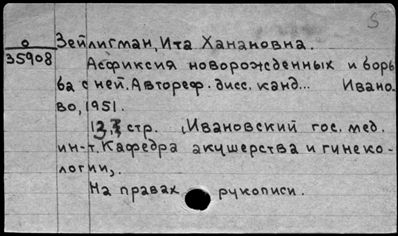 5
о
35908
Зейлигман, Ита Ханановна.
Асфиксия новорожденных и борь
ба с ней. Автореф. дисс. канд... Ивано-
во, 1951.
стр. (Ивановский гос. мед.
ин-т. Кафедра акушерства и гинеко-
логии).
На правах рукописи.